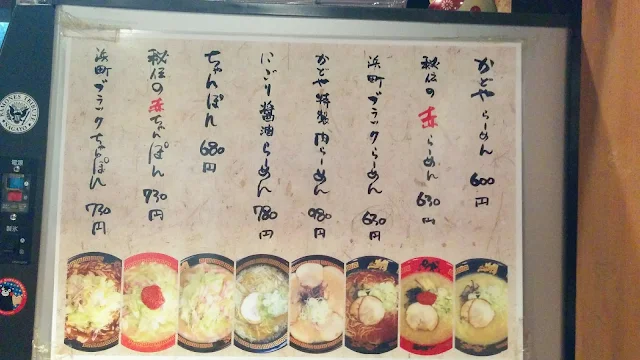 かどや らーめん 600円
秘伝の赤らーめん 630円
浜町ブラックらーめん 630円
かどや特製肉らーめん 980円
にごり醤油らーめん 780円
ちゃんぽん 680円
秘伝の赤ちゃんぽん 730円
浜町ブラックちゃんぽん 730円
電源
製氷